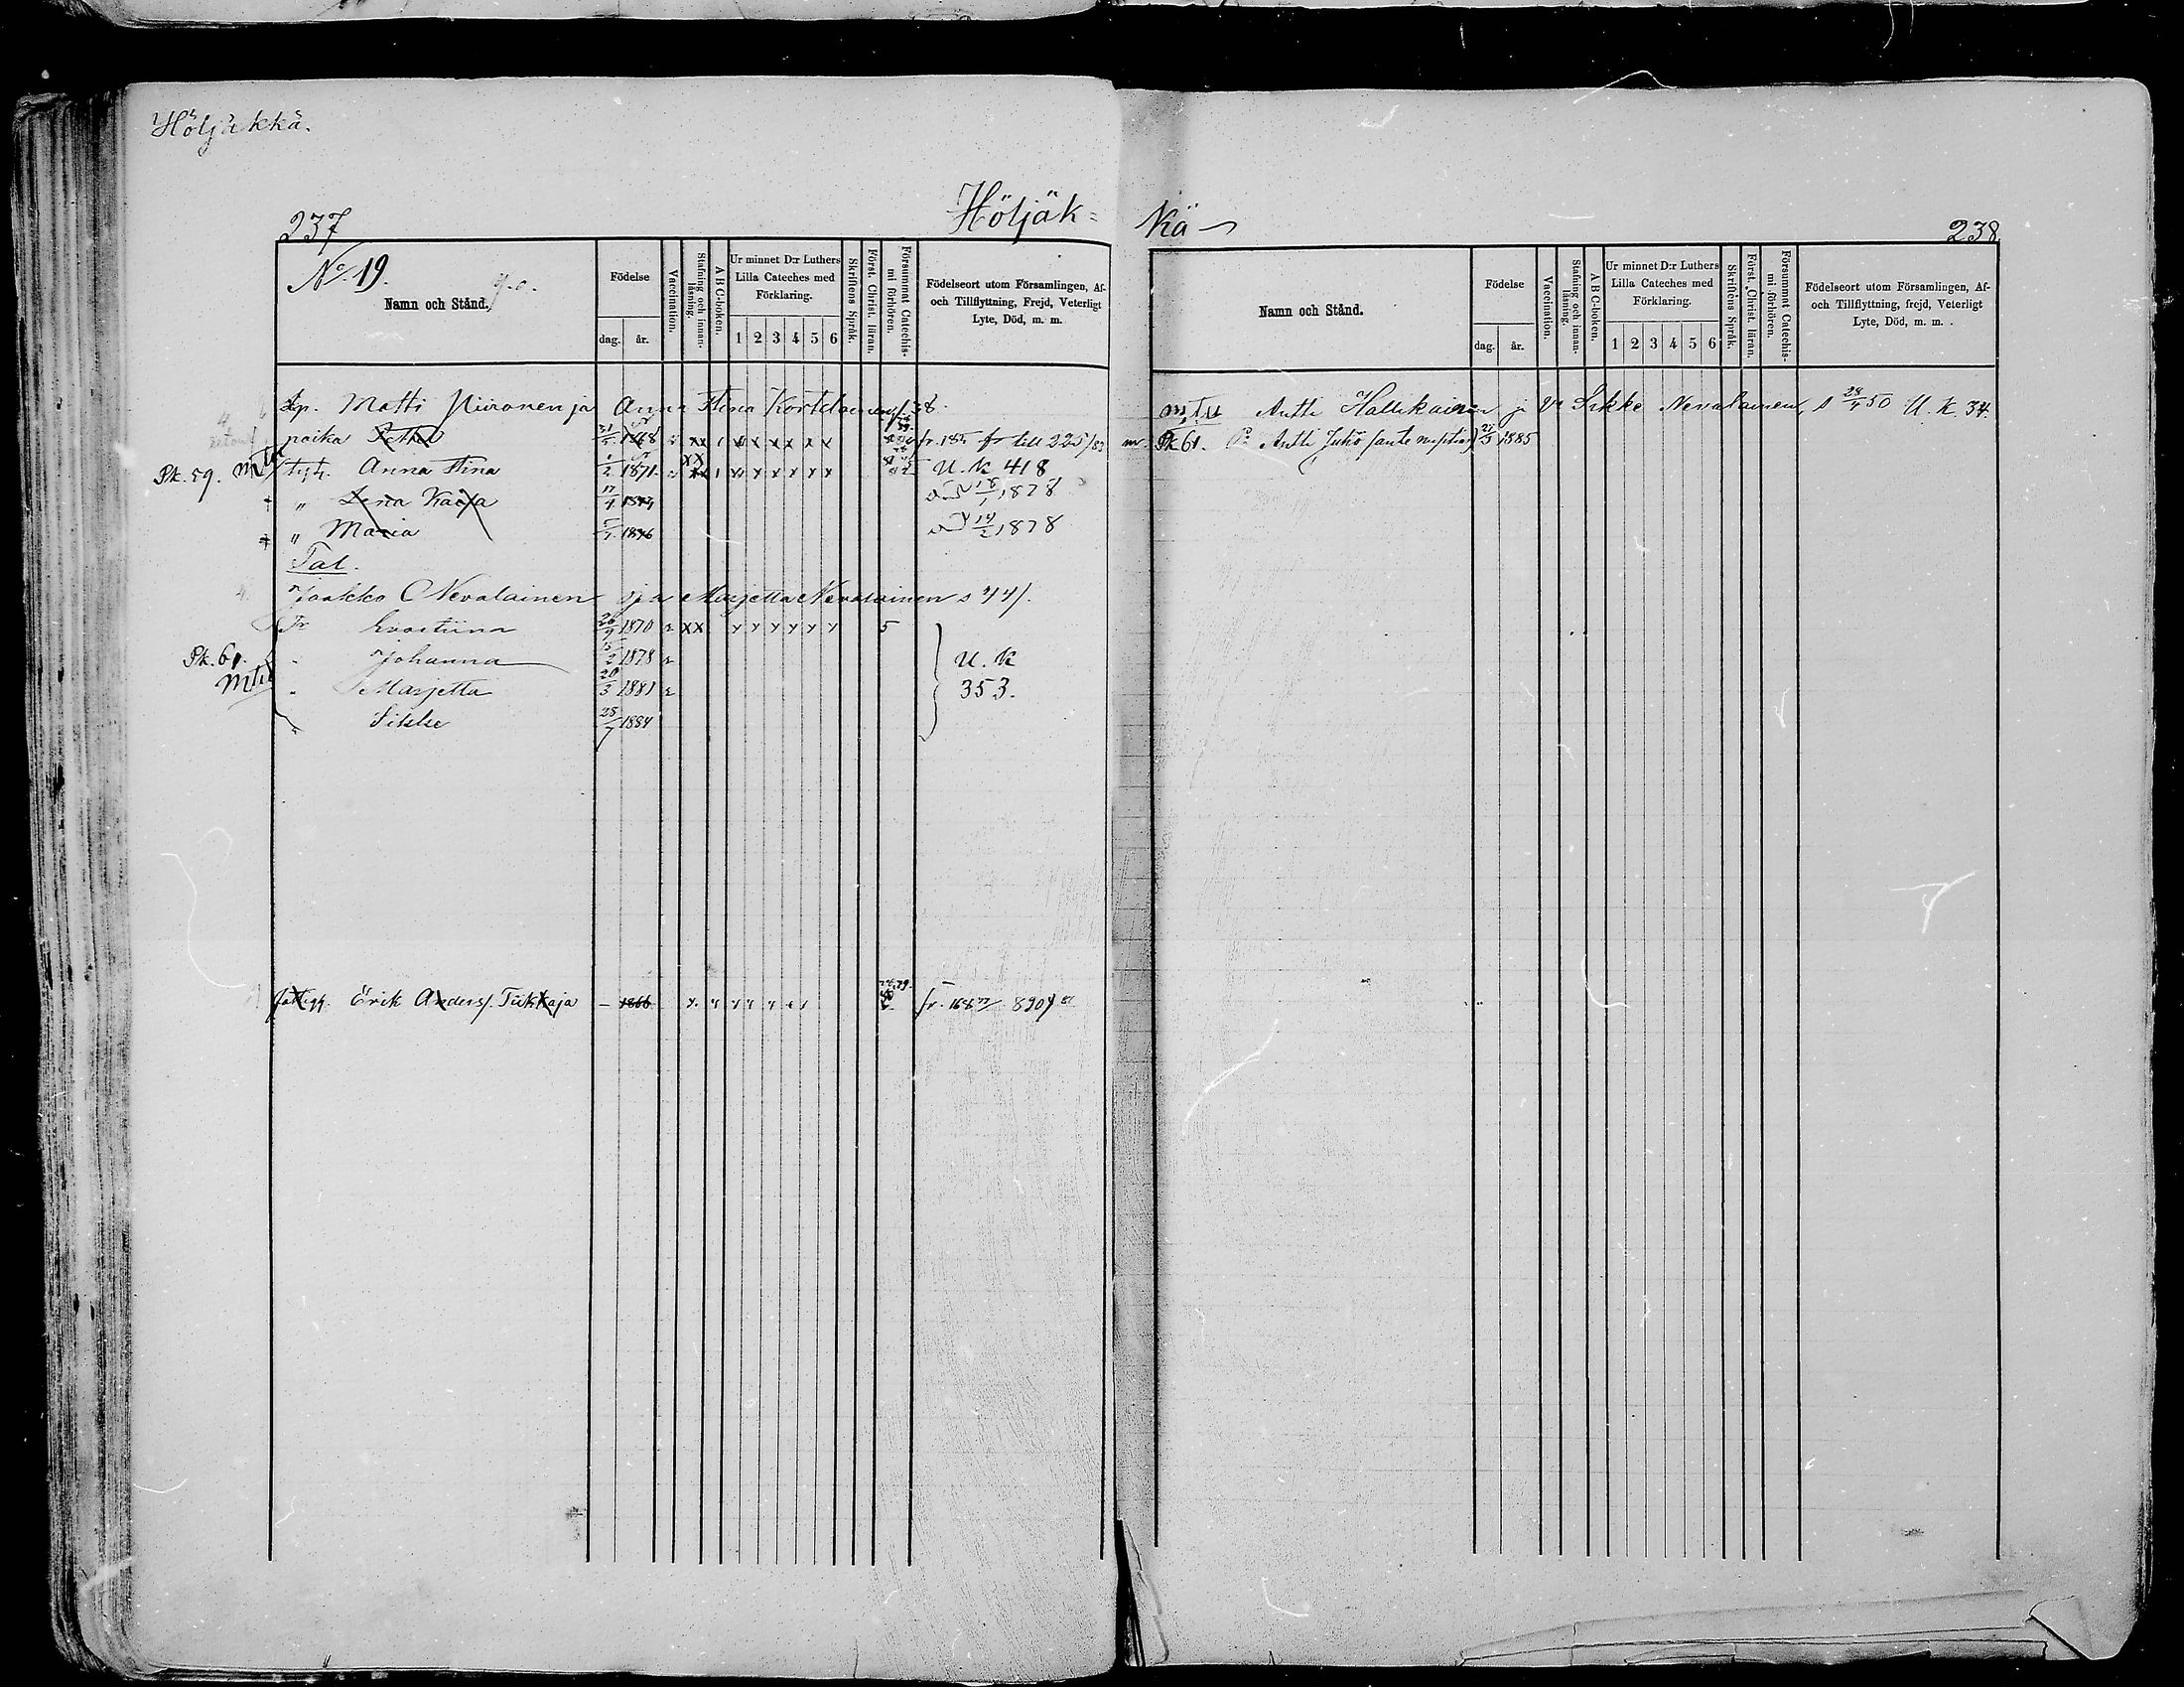 Höljäkkä.
237
Höljäk=
No 19.
Namn och Stånd.
Födelse
dag.
år.
Vaccination.
Stafning och innanläsning.
A B C-boken.
Ur minnet D:r Luthers Lilla Cateches med Förklaring.
1 2 3 4 5 6
Skriftens Språk.
Först. Christ. läran.
Försummat Catechismi förhören.
Födelseort utom Församlingen, Af- och Tillflyttning, Frejd, Veterligt Lyte, Död, m. m.
Matti Piironen ja Anna Stina Kortelainen s. 38.
poika 31/5 1868 x x x x x x fr. 185 till 225/83
Pk. 59. tytt. Anna Stina 1/2 1871 xx x x x x x x U. K 418
" Lena Kaisa 17/4 1874 18/1 1878
" Maria 1876 14/2 1878
Tal.
Jaakko Nevalainen ja Marjetta Nevalainen s 44/.
Tr Evastiina 26/9 1870 xx 5
Pk. 61. " Johanna 15/2 1878 U. K
" Marjetta 20/3 1881 353.
" Sikke 25/7 1884
Erik Anders. Tukkaja – 1866 fr. 168
Kä
238
Namn och Stånd.
Födelse
dag.
år.
Vaccination.
Stafning och innanläsning.
A B C-boken.
Ur minnet D:r Luthers Lilla Cateches med Förklaring.
1 2 3 4 5 6
Skriftens Språk.
Först. Christ. läran.
Försummat Catechismi förhören.
Födelseort utom Församlingen, Af- och Tillflyttning, frejd, Veterligt Lyte, Död, m. m.
Antti Hallikainen ja Va Sikke Nevalainen, s 28/4 50 U. K. 34.
Pk 61. Po Antti Juho (ante nuptias) 1885